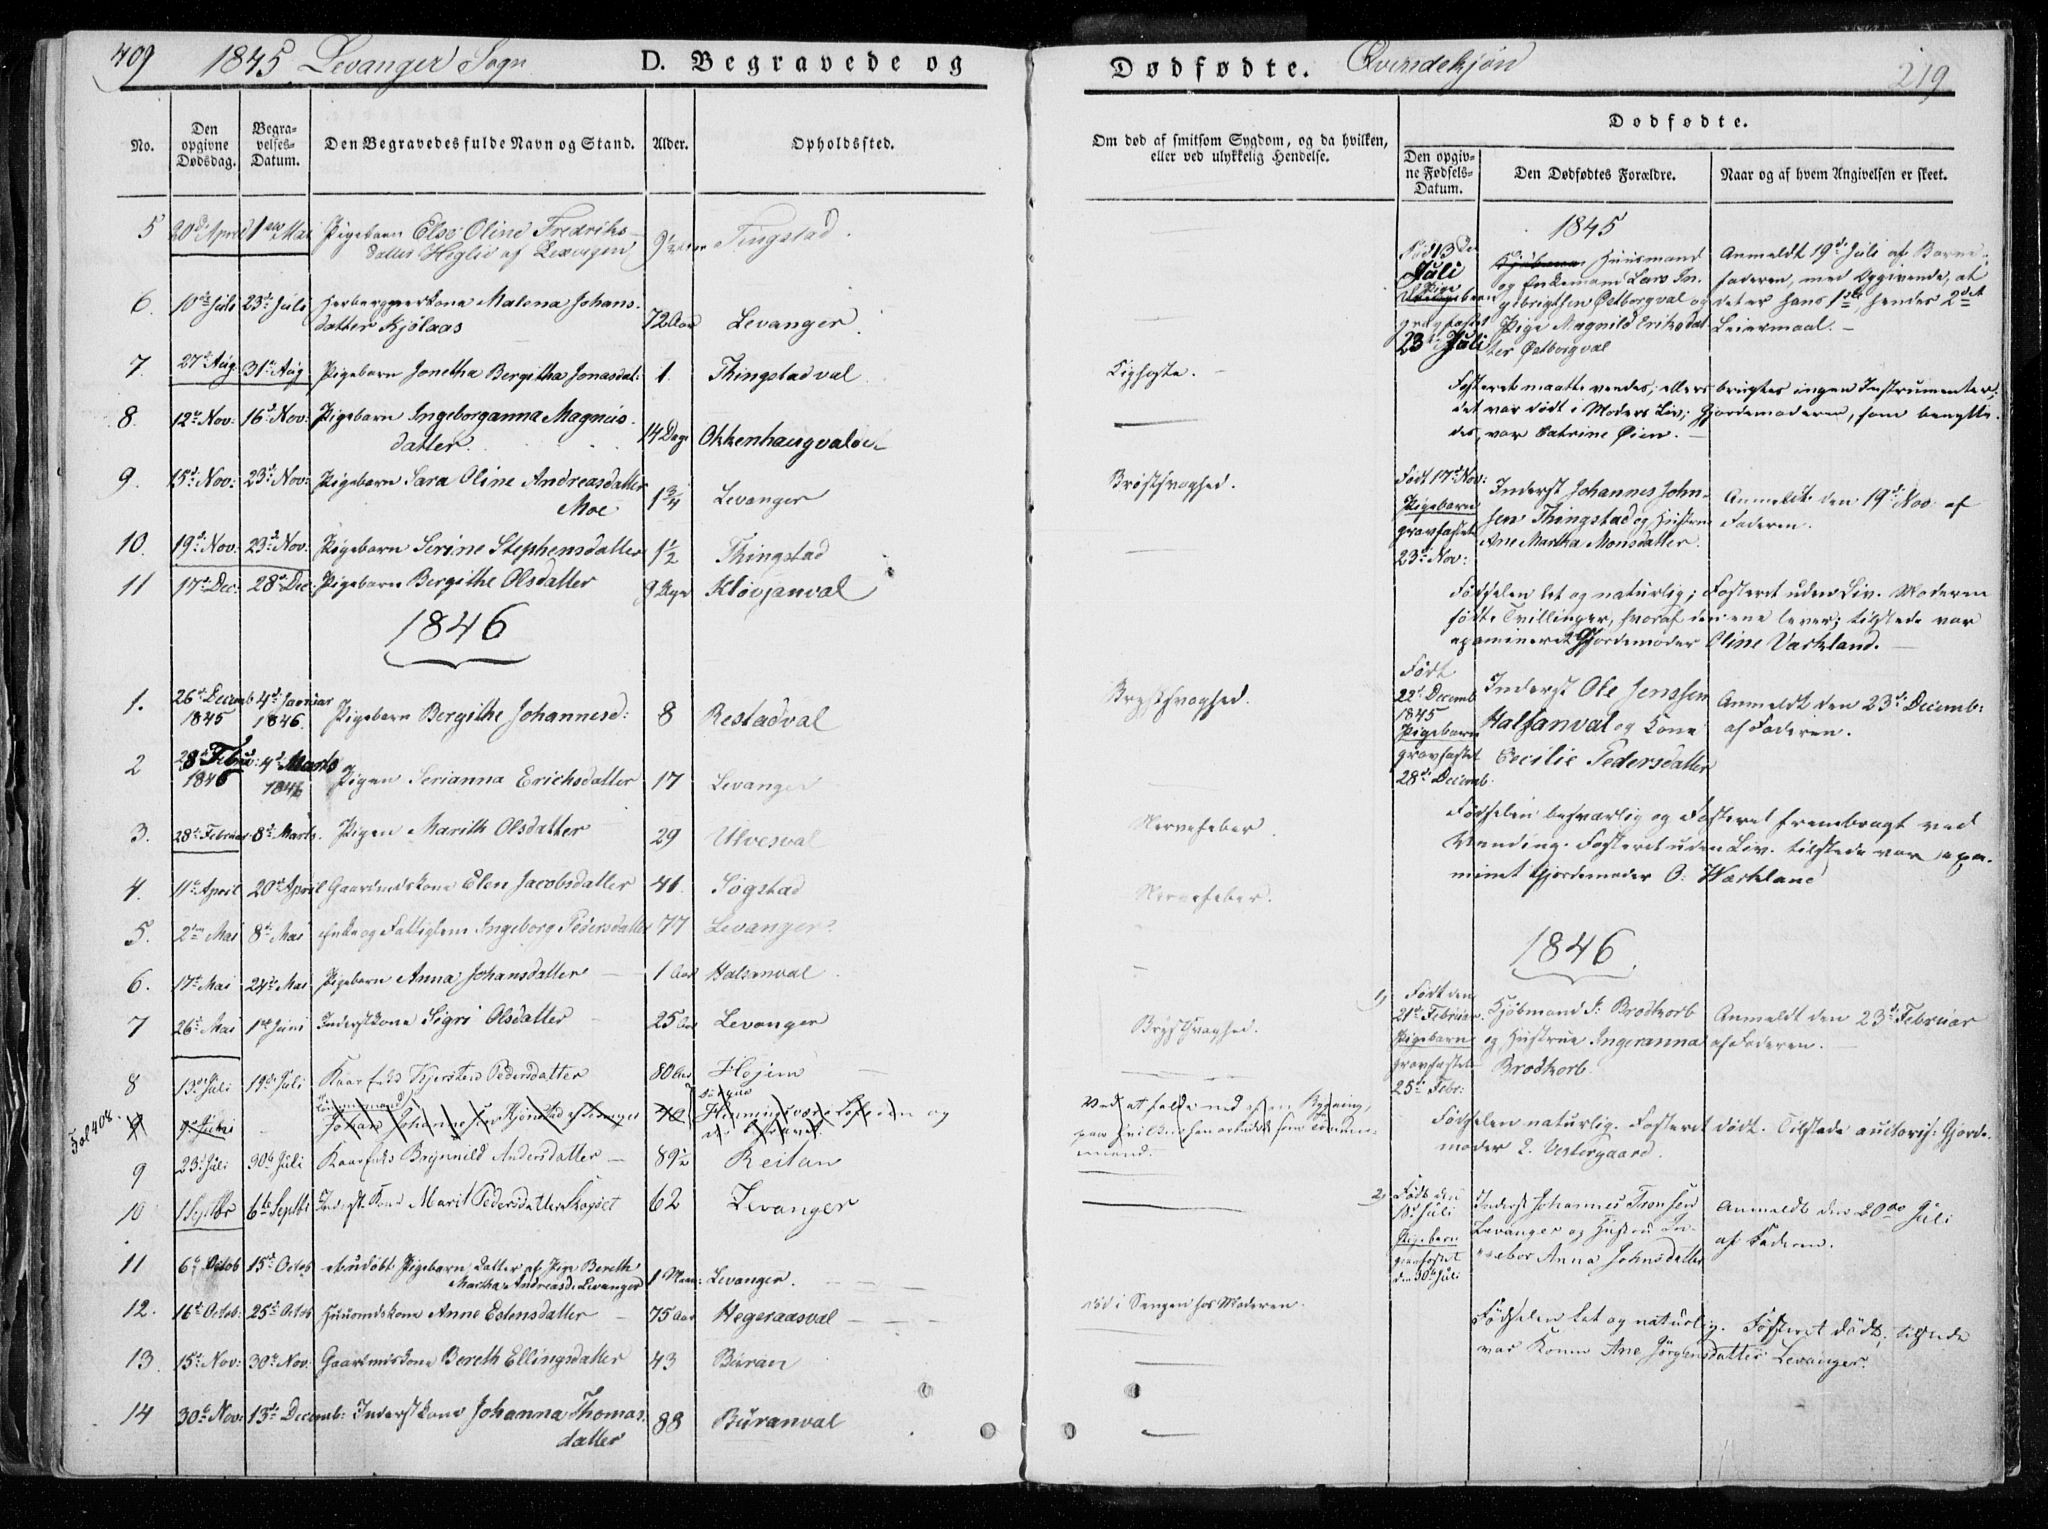 409 1845 Levanger Sogn D. Begravede og
No. Den opgivne Dødsdag. Begravelses-Datum. Den Begravedes fulde Navn og Stand. Alder. Opholdssted.
5 20de April 1ste Mai Pigebarn Else Oline Fredriks-
datter Høglie af 9 Tingstad
6. 10de Juli 23de Juli Malena Johans-
datter Kjölaas 72 Aar Levanger
7. 27de Aug. 31te Aug Pigebarn Jonetha Bergitha Jonasdat: 1. Thingstadval
8. 12te Nov: 16de Nov: Pigebarn Ingeborganna Magnus-
datter. 14 Dage Okkenhaugvald
9. 15de Nov: 23de Nov: Pigebarn Sara Oline Andreasdatter
Moe 1 3/4 Levanger
10. 19de Nov: 23de Nov. Pigebarn Serine Stephensdatter 1 1/2 Thingstad
11 17de Dec: 28de Dec: Pigebarn Bergithe Olsdatter 9 Dage Kløvjanval
1846
1. 26de Decemb 1845 4de Januar 1846. Pigebarn Bergithe Johannesd: 8 Restadval
2 28de Febru: 1846 4de Marts 1846 Pigen Serianna Erichsdatter 17 Levanger
3. 28de Februar 8de Marts. Pigen Marith Olsdatter 29 Ulvesval
4. 11te April 20de April Gaardmdskone Elen Jacobsdatter 41. Søgstad
5. 2den Mai 8de Mai Enke og Fattiglem Ingeborg Pedersdatter 77 Levanger
6. 17de Mai 24de Mai Pigebarn Anna Johansdatter 1 Aar Halsanval
7 26de Mai 1ste Juni Inderstkone Sigri Olsdatter 25 Aar Levanger
8 13de Juli 19de Juli Kaarenke Kjersten Pedersdatter 80 Aar Højem
Fol 408. Johan Johannesen 40
9 23de Juli 30te Juli Kaarenke Brynnild Andersdatter 89 1/2 Reitan
10 1 Septbr 6te Septbr Inderst Kone Marit Pedersdatter Skogset 62 Levanger
11 6te Octob 15de Octob Pigebarn, Datter af Pige Bereth
Martha Andreasd: Levanger 1 Levanger.
12. 16de Octob: 25de Octob Huusmdskone Anne Estensdatter 75 Aar Hegeraasval
13. 15de Nov: 30te Nov: Gaardmdskone Bereth Ellingsdatter 43 Buran
14 30te Nov: 13de Decemb: Inderstkone Johanna Thomas-
datter 88 Buranval
Dødfødte. Qvindekjøn 219
Om død af smitsom Sygdom, og da hvilken, eller ved ulykkelig Hendelse.
Dødfødte.
Den opgivne Fødsels-Datum. Den Dødfødtes Forældre. Naar og af hvem Angivelsen er skeet.
Kighoste. -
Brøstsvaghed.
Brystsvaghed.
Nervefeber
Nervefeber.
Brystsvaghed.
Ved at falde ned af en Bygning,
paa hvilken han arbeidede som Tømmer-
mand.
Død i Sengen hos Moderen.
1845
Født 13de Juli Pige gravfæstet 23de Juli
Huusmand
og Enkemand Lars In-
gebrigtsen Østborgval og
Pige Magnild Eriksdat
ter Østborgval
Anmeldt 19de Juli af Barne-
faderen, med Opgivende, at
det er hans 1ste, hendes 2det
Leiermaal. -
Fosteret maatte vendes; ellers brugtes ingen Instrumenter;
det var dødt i Moders Liv; Gjordemoderen, som benytte-
des, var Catrine Øien. -
Født 17de Nov: Pigebarn gravfæstet 23de Nov:
Inderst Johannes John-
sen Thingstad og Hustru
Ane Martha Monsdatter.
Anmeldt den 19de Nov af
Faderen.
Fødselen let og naturlig; Fosteret uden Liv. Moderen
fødte Tvillinger, hvoraf den ene lever; tilstede var
examineret Gjordemoder Oline Varkland. -
Født 22de Decemb 1845 Pigebarn gravfæstet 28de Decemb:
Inderst Ole Jenssen
Halsanval og Kone
Cecilie Pedersdatter
Anmeldt den 23de Decemb:
af Faderen.
Fødselen besværlig og Fosteret frembragt ved
Vending. Fosteret uden Liv. tilstede var exa-
mineret Gjordemoder O: Warkland
1846
1, Født den 21de Februar Pigebarn gravfæstet 25de Febr:
Kjøbmand J: Brodkorb
og Hustrue Ingeranna
Brodkorb.
Anmeldt den 23de Februar
af Faderen. -
Fødselen naturlig. Fosteret dødt. Tilstede auctoris: Gjorde-
moder E. Vestergaard.
2, Født den 18de Juli Pigebarn gravfæstet den 30te Juli
Inderst Johannes Tronsen
Levanger og Hustru In-
geebor Anna Johnsdatter
Anmeldt den 20de Juli
af Faderen.
Fødselen let og naturlig. Fosteret dødt, tilstede
var Konen Ane Jørgensdatter Levanger.